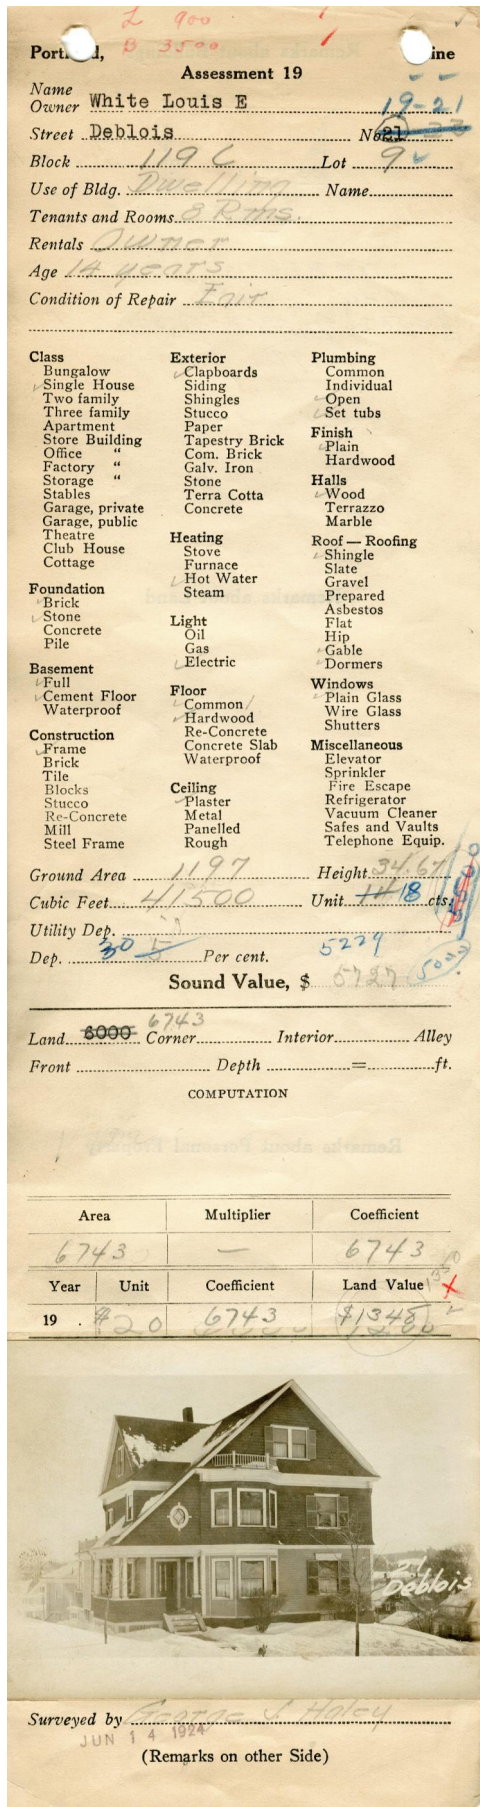 L 900
B 3500
Assessment 19
Name
Owner White Louis E
19-21
Street Deblois No. 21
Block 119 C Lot 9
Use of Bldg. Dwelling Name
Tenants and Rooms 8 Rms.
Rentals Owner
Age 14 years
Condition of Repair Fair
Class
Bungalow
Single House
Two family
Three family
Apartment
Store Building
Office "
Factory "
Storage "
Stables
Garage, private
Garage, public
Theatre
Club House
Cottage
Foundation
Brick
Stone
Concrete
Pile
Basement
Full
Cement Floor
Waterproof
Construction
Frame
Brick
Tile
Blocks
Stucco
Re-Concrete
Mill
Steel Frame
Exterior
Clapboards
Siding
Shingles
Stucco
Paper
Tapestry Brick
Com. Brick
Galv. Iron
Stone
Terra Cotta
Concrete
Heating
Stove
Furnace
Hot Water
Steam
Light
Oil
Gas
Electric
Floor
Common
Hardwood
Re-Concrete
Concrete Slab
Waterproof
Ceiling
Plaster
Metal
Panelled
Rough
Plumbing
Common
Individual
Open
Set tubs
Finish
Plain
Hardwood
Halls
Wood
Terrazzo
Marble
Roof — Roofing
Shingle
Slate
Gravel
Prepared
Asbestos
Flat
Hip
Gable
Dormers
Windows
Plain Glass
Wire Glass
Shutters
Miscellaneous
Elevator
Sprinkler
Fire Escape
Refrigerator
Vacuum Cleaner
Safes and Vaults
Telephone Equip.
Ground Area 1197 Height 34.67
Cubic Feet 41500 Unit 14 18 cts.
Utility Dep.
Dep. 30 5 Per cent. 5229
Sound Value, $ 5727
6743
Land 6000 Corner Interior Alley
Front Depth = ft.
COMPUTATION
Area Multiplier Coefficient
6743 — 6743
Year Unit Coefficient Land Value
19 . $20 6743 $1348
21
Deblois
Surveyed by George J. Haley
JUN 14 1924
(Remarks on other Side)